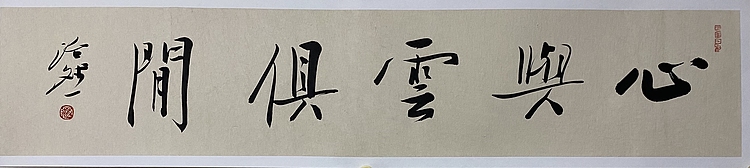 心與雲俱閒